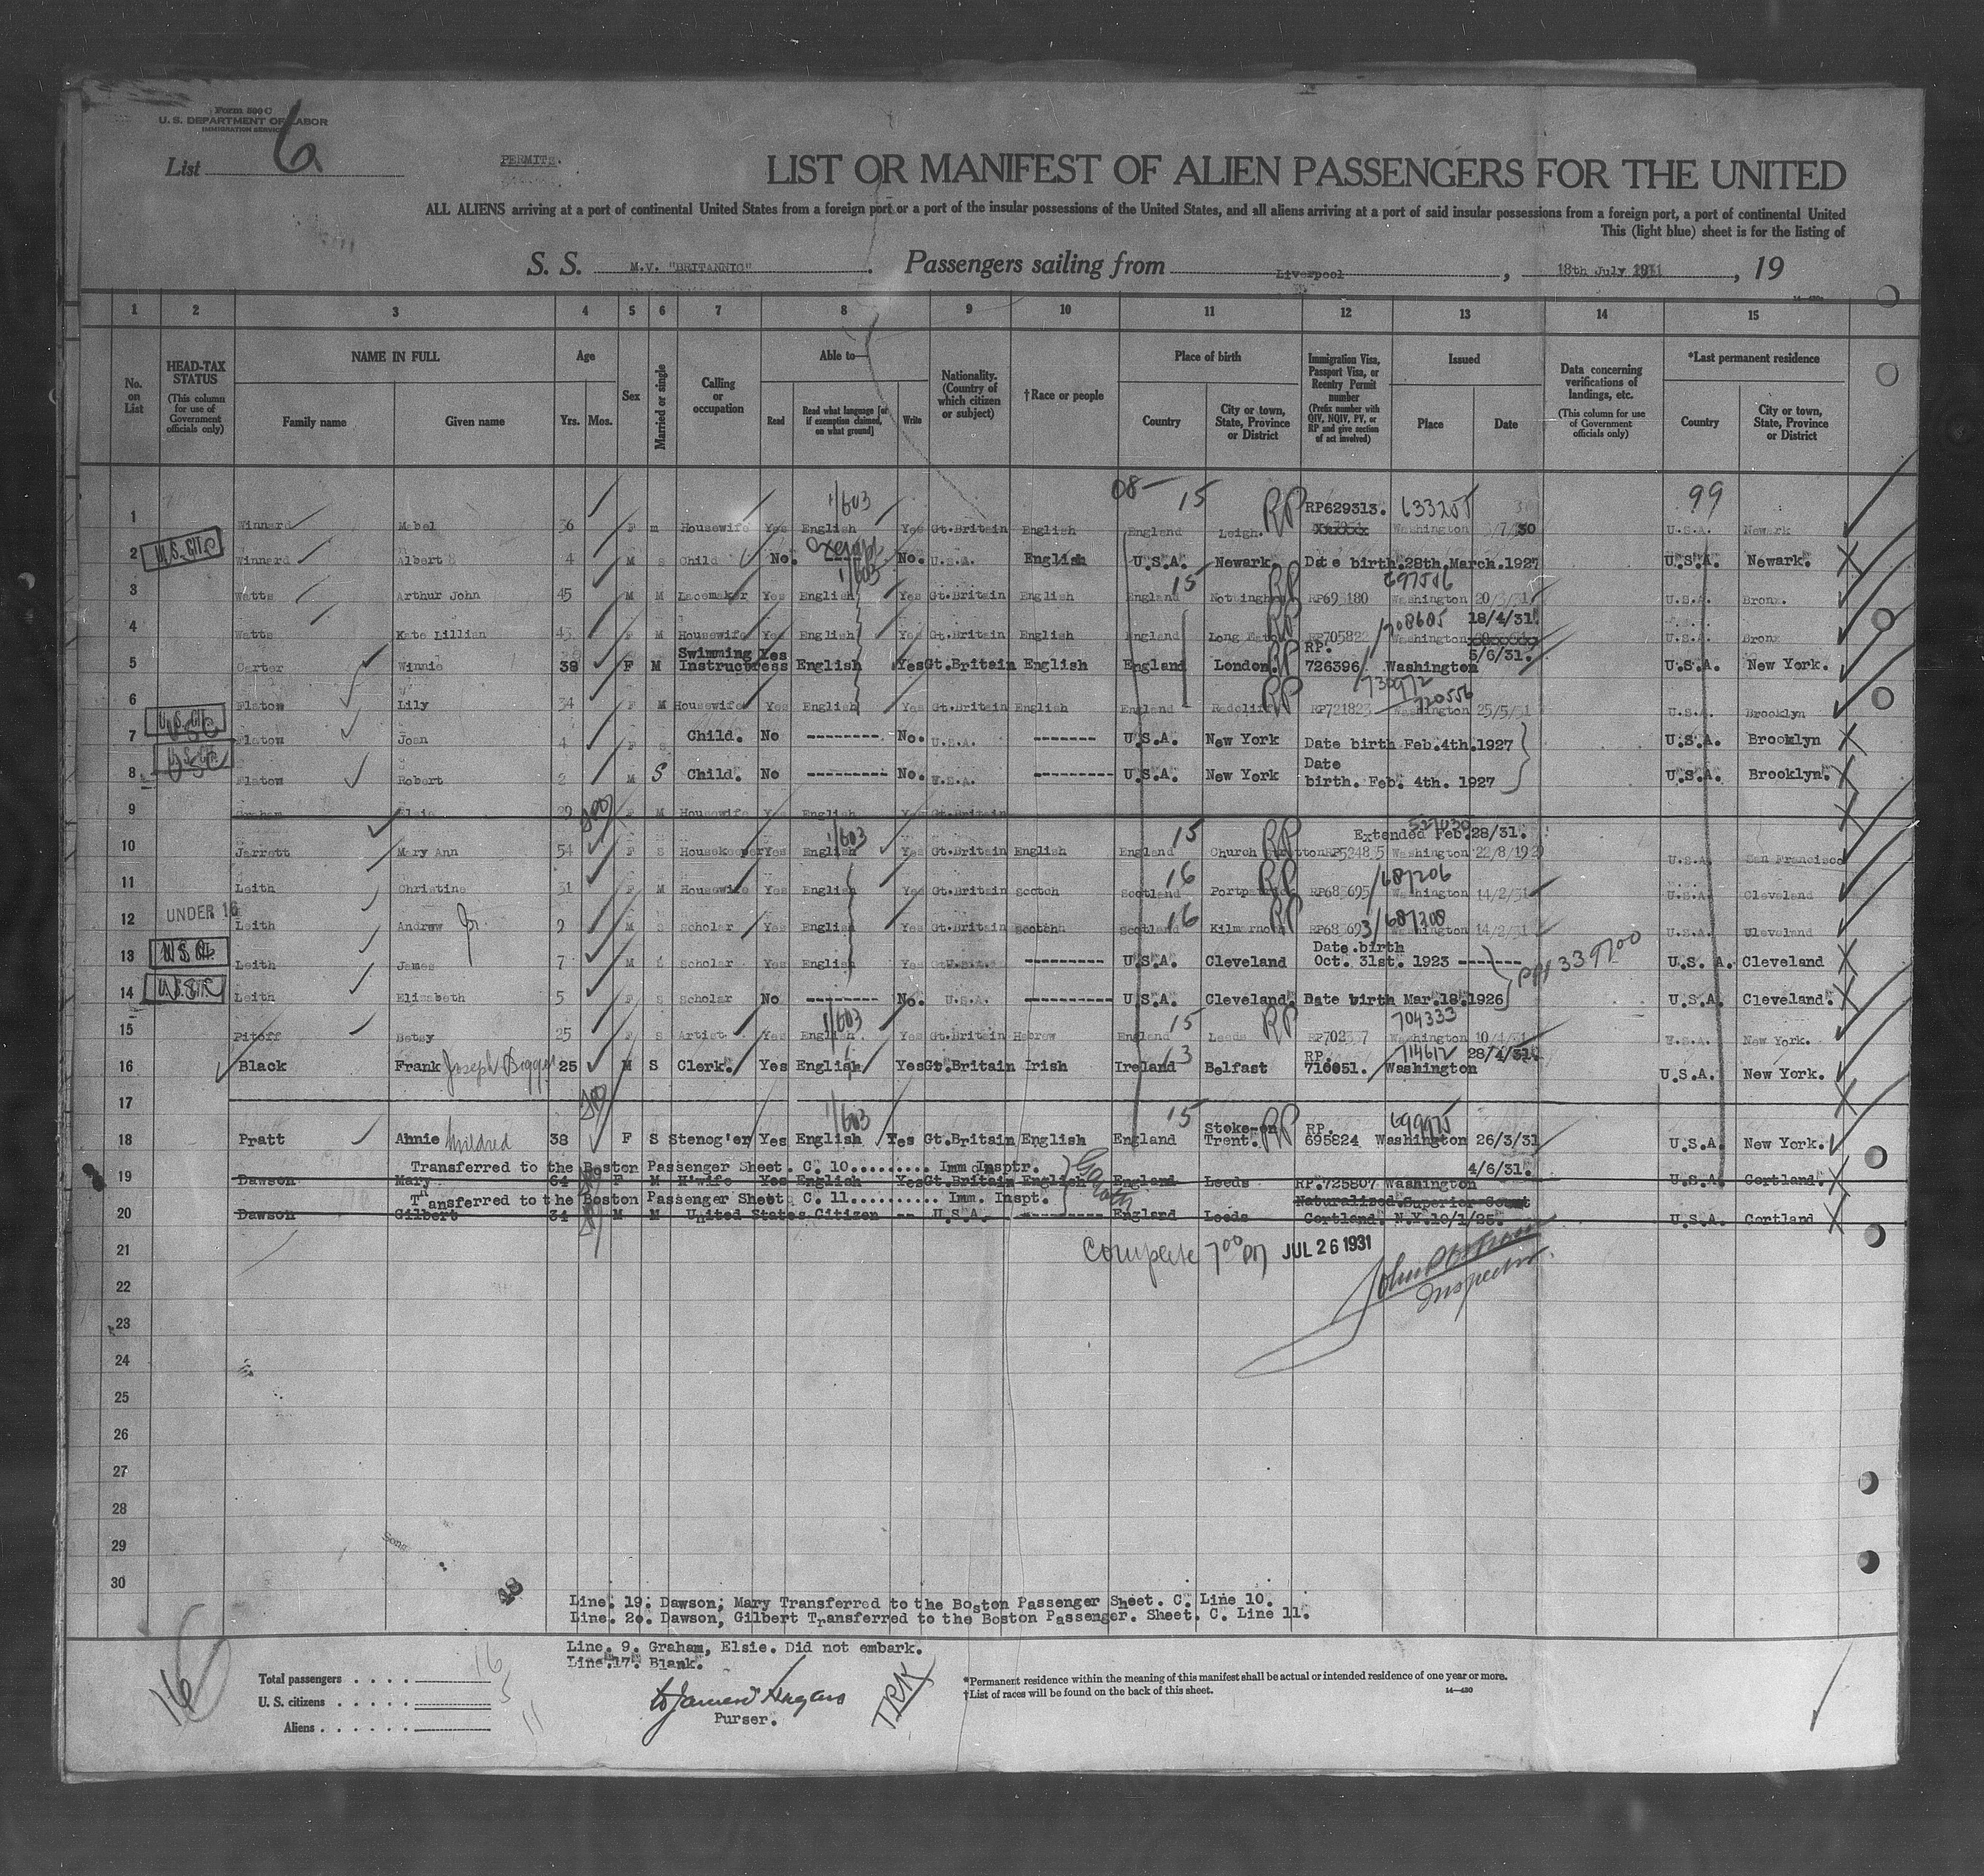 Form 500 C
U. S. DEPARTMENT OF LABOR
IMMIGRATION SERVICE
List 6
PERMITS.
LIST OR MANIFEST OF ALIEN PASSENGERS FOR THE UNITED
ALL ALIENS arriving at a port of continental United States from a foreign port or a port of the insular possessions of the United States, and all aliens arriving at a port of said insular possessions from a foreign port, a port of continental United
This (light blue) sheet is for the listing of
S. S. M.V. "BRITANNIC". Passengers sailing from Liverpool, 18th July 1931, 19
1 2 3 4 5 6 7 8 9 10 11 12 13 14 15
No. on List
HEAD-TAX STATUS (This column for use of Government officials only)
NAME IN FULL Family name Given name
Age Yrs. Mos.
Sex
Married or single
Calling or occupation
Able to— Read Read what language [or if exemption claimed, on what ground] Write
Nationality. (Country of which citizen or subject)
†Race or people
Place of birth Country City or town, State, Province or District
Immigration Visa, Passport Visa, or Reentry Permit number (Prefix number with QIV, NQIV, PV, or RP and give section of act involved)
Issued Place Date
Data concerning verifications of landings, etc. (This column for use of Government officials only)
*Last permanent residence Country City or town, State, Province or District
1/603 08— 15 RP RP629313. 633255 99
1 Winnard Mabel 36 F m Housewife Yes English Yes Gt.Britain English England Leigh. Washington 30 U.S.A. Newark
2 U.S. CIT. Winnard Albert 4 M S Child No. Exempt No. U.S.A. English U.S.A. Newark. Date birth.28th.March.1927 U.S.A. Newark.
1/603 15 RP 697516
3 Watts Arthur John 45 M M Lacemaker Yes English Yes Gt.Britain English England Nottingham Washington 20/3/31 U.S.A. Bronx.
RP 708605 18/4/31.
4 Watts Kate Lillian 43 F M Housewife Yes English Yes Gt.Britain English England Long Eaton RP705822 Washington U.S.A. Bronx
Swimming Yes RP. 5/6/31.
5 Carter Winnie 38 F M Instructress English Yes Gt.Britain English England London. RP 726396 Washington U.S.A. New York.
730972 720556
6 Flatow Lily 34 F M Housewife Yes English Yes Gt.Britain English England Radcliff RP RP721823 Washington 25/5/31 U.S.A. Brooklyn
7 U.S. CIT. Flatow Joan 4 F S Child. No -------- No. U.S.A. ------- U.S.A. New York Date birth Feb.4th.1927 U.S.A. Brooklyn
8 U.S. CIT. USC Flatow Robert 2 M S Child. No --------- No. U.S.A. --------- U.S.A. New York Date birth. Feb. 4th. 1927 U.S.A. Brooklyn.
9 Graham Elsie 29 F M Housewife Y English Yes Gt.Britain
1/603 15 RP Extended Feb.28/31.
10 Jarrett Mary Ann 54 F S Housekeeper Yes English Yes Gt.Britain English England Church Stretton Washington 22/8/1929 U.S.A. San Francisco
16 RP 687206
11 Leith Christina 31 F M Housewife Yes English Yes Gt.Britain Scotch Scotland RP683695 Washington 14/2/31 U.S.A. Cleveland
UNDER 16
12 Leith Andrew Jr 9 M S Scholar Yes English Yes Gt.Britain Scotch Scotland 16 Kilmarnock RP RP683693 687208 Washington 14/2/31 U.S.A. Cleveland
13 Leith James 7 M S Scholar Yes English Yes U.S.A. --------- U.S.A. Cleveland Date.birth Oct. 31st. 1923 ------- U.S.A. Cleveland
14 Leith Elizabeth 5 F S Scholar No -------- No. U.S.A. ---------- U.S.A. Cleveland. Date birth Mar.18.1926 U.S.A. Cleveland.
1/603 15 RP 704333
15 Pitoff Betsy 25 F S Artist Yes English. Yes Gt.Britain Hebrew England Leeds Washington 10/4/31 U.S.A. New York.
RP. 714612 28/4/31.
16 Black Frank Joseph 25 M S Clerk. Yes English Yes Gt.Britain Irish Ireland 13 Belfast 710051. Washington U.S.A. New York.
17
1/603 15 RP 699975
18 Pratt Annie Mildred 38 F S Stenog'er Yes English Yes Gt.Britain English England Stoke-on Trent. RP. 695824 Washington 26/3/31 U.S.A. New York.
Transferred to the Boston Passenger Sheet. C. 10......... Imm Insptr. 4/6/31.
19 Dawson Mary 64 F M H'wife Yes English Yes Gt.Britain English England Leeds RP.725807 Washington U.S.A. Cortland.
Transferred to the Boston Passenger Sheet C. 11.......... Imm. Inspt. Naturalized.Superior Court
20 Dawson Gilbert 34 M M United States Citizen -- U.S.A. --------- England Leeds Cortland. N.Y.10/1/25. U.S.A. Cortland
21 Complete 7 00 PM JUL 26 1931
22 Inspector
23
24
25
26
27
28
29
30
Line. 19. Dawson, Mary Transferred to the Boston Passenger Sheet. C. Line 10.
Line. 20. Dawson, Gilbert Transferred to the Boston Passenger. Sheet. C. Line 11.
Line. 9. Graham, Elsie. Did not embark.
Line.17. Blank.
Total passengers . . . . 16
U. S. citizens . . . . . 5
Aliens . . . . . . 11
16
Purser.
*Permanent residence within the meaning of this manifest shall be actual or intended residence of one year or more.
†List of races will be found on the back of this sheet.
14—430